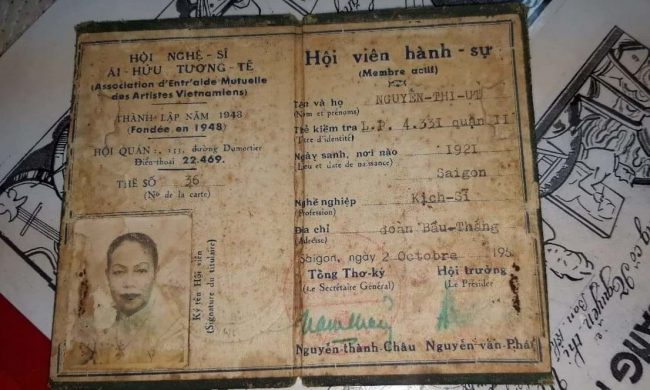 HỘI NGHỆ-SĨ
ÁI-HỮU TƯƠNG-TẾ
(Association d'Entr'aide Mutuelle
des Artistes Vietnamiens)
THÀNH LẬP NĂM 1948
(Fondée en 1948)
HỘI QUÁN : 133, đường Dumortier
Điện-thoại 22.469.
THẺ SỐ 36
(No de la carte)
Ký tên Hội viên
(Signature du titulaire)
Hội viên hành-sự
(Membre actif)
Tên và họ NGUYỄN-THỊ-ÚT
(Nom et prénoms)
Thẻ kiểm tra L.P. 4.331 quận II
(Titre d'identité)
Ngày sanh, nơi nào 1921
(Lieu et date de naissance)
Saigon
Nghề nghiệp Kịch-Sĩ
(Profession)
Địa chỉ đoàn Bầu-Thắng
(Adresse)
Saigon, ngày 2 Octobre 195
Tổng Thơ-ký Hội trưởng
(Le Secrétaire Général) (Le Président
Nguyễn-thành-Châu Nguyễn-văn-Phát
ANG
Nguyen thi